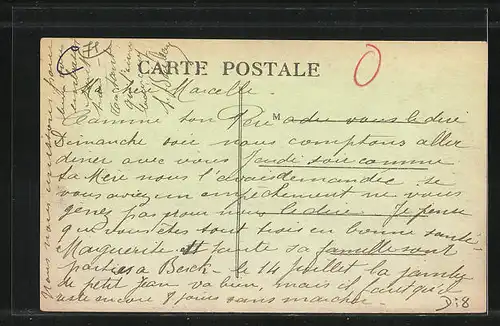 CARTE POSTALE
Ma chère Marcelle.
Comme ton Père a du vous le dire
Dimanche soir nous comptons aller
diner avec vous jeudi soir comme
ta Mère nous l'avais demandée se
vous aviez un empêchement ne vous
genez pas pour nous le dire. Je pense
que vous êtes tout trois en bonne santé.
Marguerite et toute sa famille sont
partis a Berck le 14 Juillet la jambe
de petit Jean va bien, mais il faut qu'il
reste encore 8 jours sans marcher
M
D:8